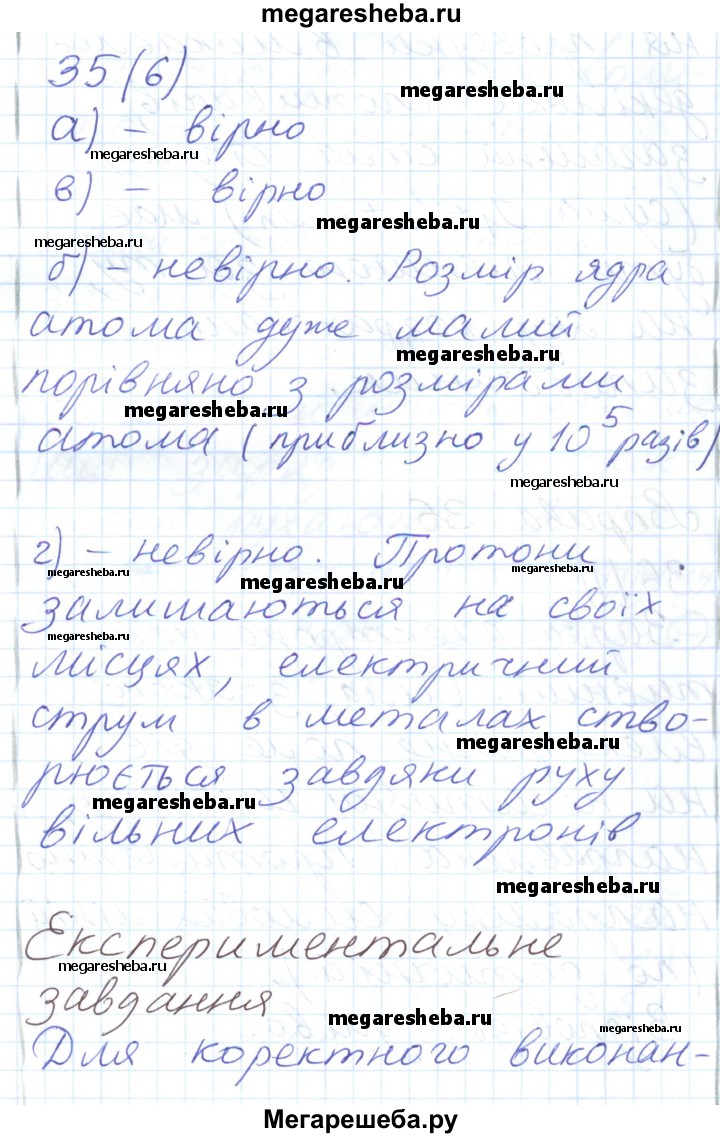 megaresheba.ru
35(6)
megaresheba.ru
а) – вірно
megaresheba.ru
в) – вірно
megaresheba.ru
megaresheba.ru
б) – невірно. Розмір ядра
атома дуже малий
megaresheba.ru
порівняно з розмірами
megaresheba.ru
атома (приблизно у 10⁵ разів)
megaresheba.ru
г) – невірно. Протони
megaresheba.ru
megaresheba.ru
megaresheba.ru
залишаються на своїх
megaresheba.ru
місцях, електричний
струм в металах ство-
megaresheba.ru
рюється завдяки руху
megaresheba.ru
вільних електронів
megaresheba.ru
Експериментальне
megaresheba.ru
завдання
megaresheba.ru
megaresheba.ru
Для коректного виконан-
Мегарешеба.ру